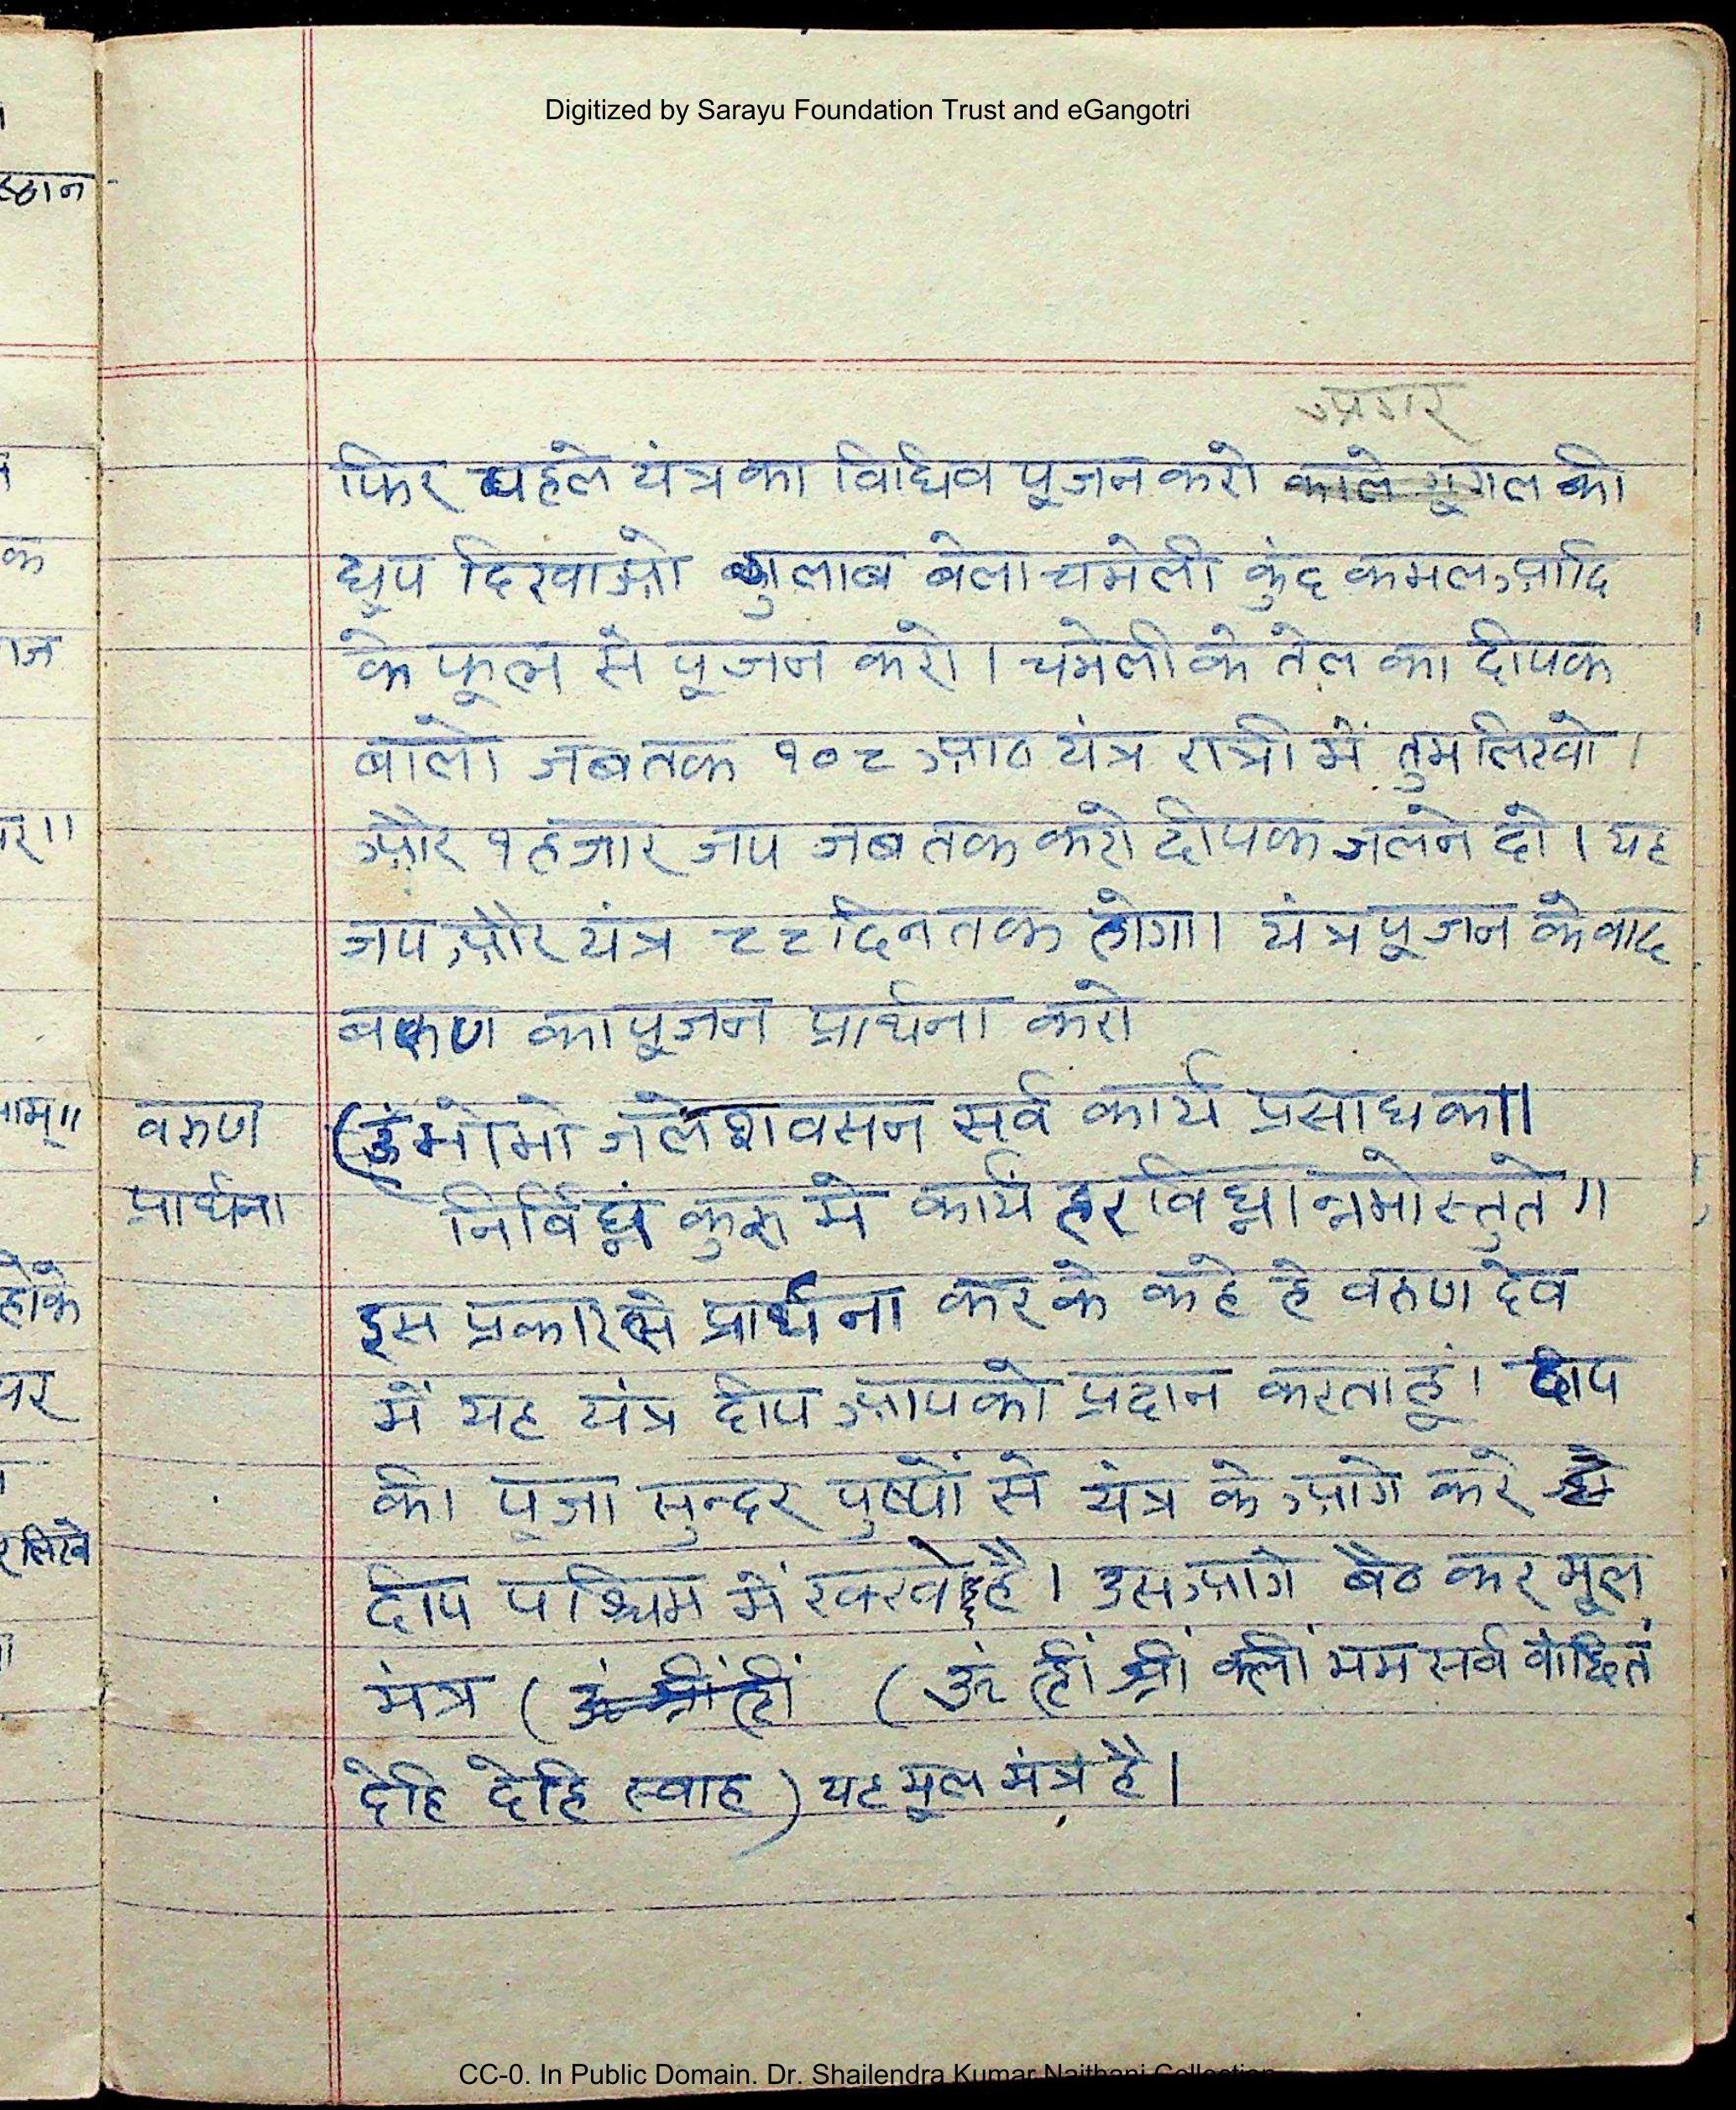 Digitized by Sarayu Foundation Trust and eGangotri
अगर
फिर पहले यंत्र का विधिव पूजन करो काले गूगल की
धुप दिखाओ गुलाब बेला चमेली कुंद कमल आदि
के फूल से पूजन करो। चमेली के तेल का दीपक
बालो जबतक १०८ आठ यंत्र रात्री में तुम लिखो।
और १ हजार जप जब तक करो दीपक जलने दो। यह
जप और यंत्र ८८ दिन तक होगा। यंत्र पूजन के वाद
बरुण का पूजन प्रार्थना करो
वरुण (ॐ मोमो जलेशवसन सर्व कार्य प्रसाधक॥
प्रार्थना निर्विघ्नं कुरु मे कार्यं हर विघ्नान्नमोस्तुते॥
इस प्रकार से प्रार्थना कर के कहे हे वरुण देव
में यह यंत्र दीप आपको प्रदान करता हूं। दीप
की पूजा सुन्दर पुष्पों से यंत्र के आगे करे
दीप पश्चिम में रक्खे है। उस आगे बैठ कर मूल
मंत्र (ॐ श्रीं ह्रीं (ॐ ह्रीं श्रीं क्लीं मम सर्व वांछितं
देहि देहि स्वाह) यह मूल मंत्र है।
स्ठान
क
ाज
र॥
ाम्॥
होके
पर
र लिखे
CC-0. In Public Domain. Dr. Shailendra Kumar Naithani Collection